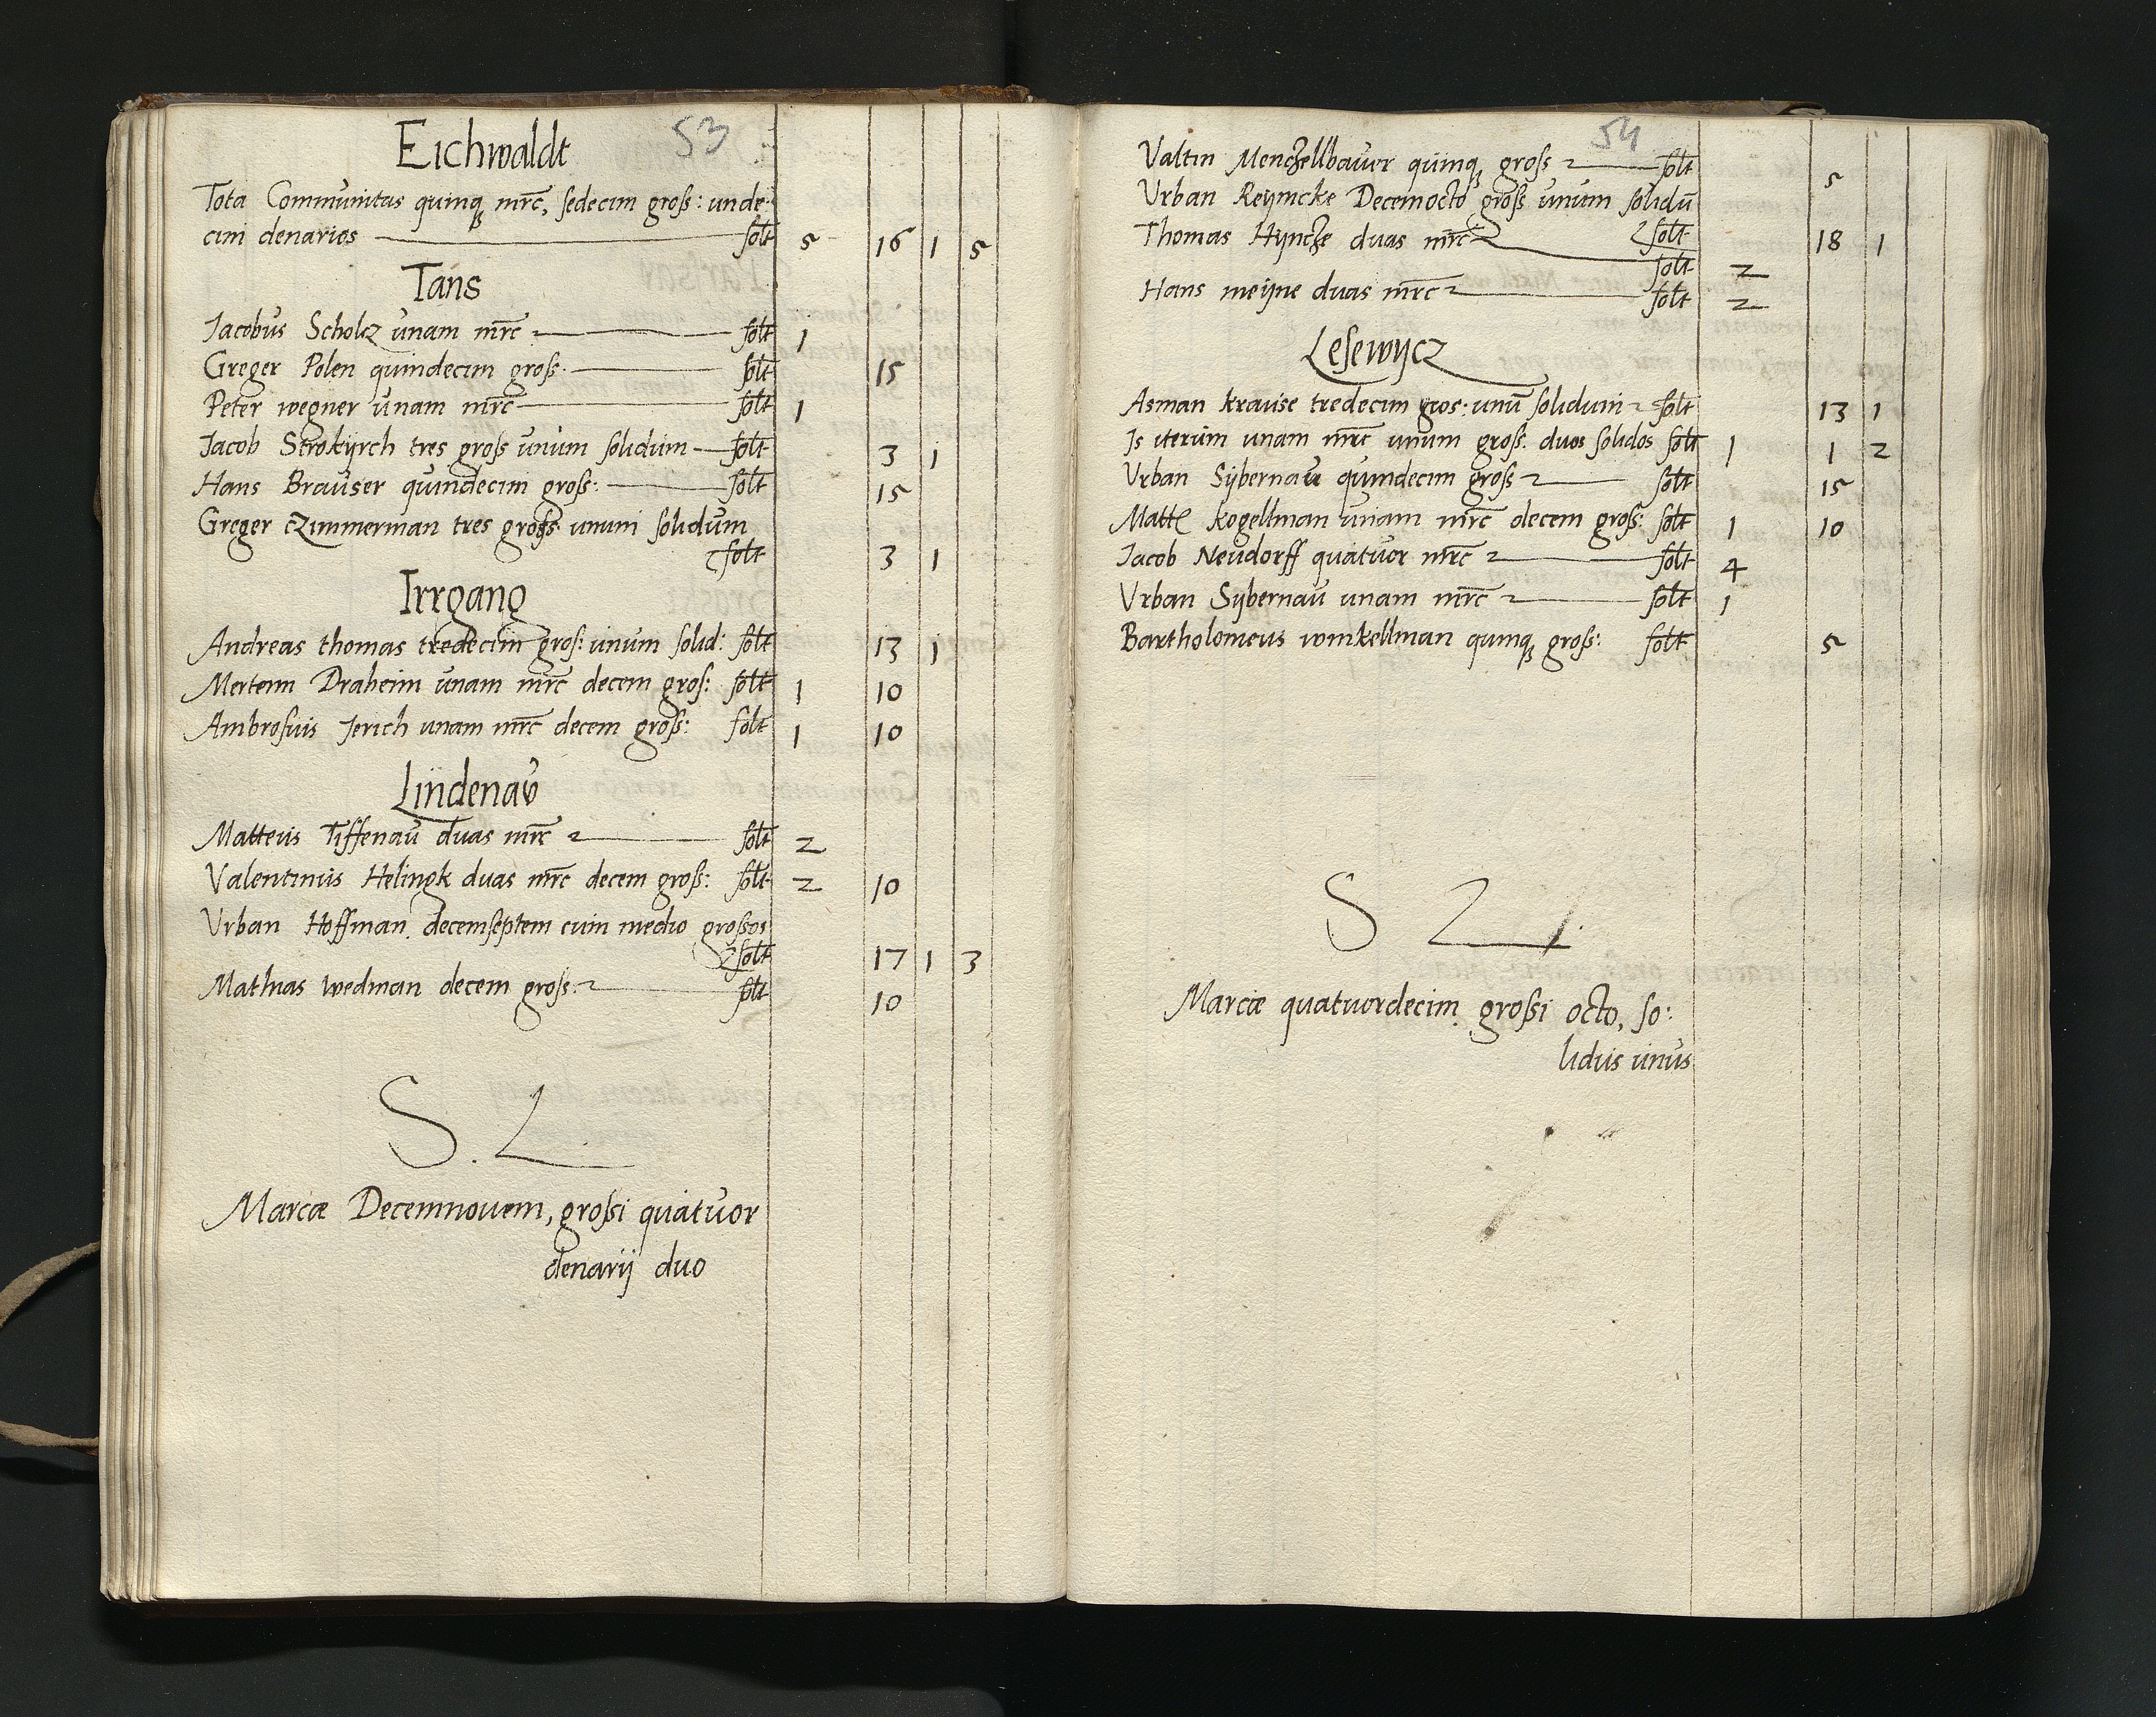 Eichwaldt 53
Tota Communitas quinq₃ mrc, sedecim gross: unde:
cim denarios solt 5 16 1 5
Tans
Jacobus Scholcz unam mrc solt 1
Greger Polen quindecim gross. solt 15
Peter wegner unam mrc solt 1
Jacob Strokÿrch tres gross unum solidum solt 3 1
Hans Brauser quindecim gross: solt 15
Greger Czimmerman tres gross unum solidum
solt 3 1
Irrgang
Andreas thomas tredecim gros: unum solid: solt 13 1
Mertenn Draheim unam mrc decem gros: solt 1 10
Ambrosius Jerich unam mrc decem gross: solt 1 10
Lindenau
Matteus Tiffenau duas mrc solt 2
Valentinus Helingk duas mrc decem gross: solt 2 10
Urban Hoffman decemseptem cum medio grossos
solt 17 1 3
Mathias wedman decem gross: solt 10
S. L.
Marcæ Decemnovem, grossi quatuor
denarij duo
54
Valtin Menczellbauer quinq₃ gross solt 5
Urban Reÿmcke Decemocto gross unum solidū
solt 18 1
Thomas Hÿncze duas mrc solt 2
Hans meÿne duas mrc solt 2
Lesewÿcz
Asman krause tredecim gros: unū solidum solt 13 1
Is iterum unam mrc unum gross. duos solidos solt 1 1 2
Urban Sÿbernau quindecim gross solt 15
Matt Kogellman unam mrc decem gross: solt 1 10
Jacob Neudorff quatuor mrc solt 4
Urban Sÿbernau unam mrc solt 1
Bartholomeus winkellman quinq₃ gross: solt 5
S L
Marcæ quatuordecim grossi octo, so:
lidus unus